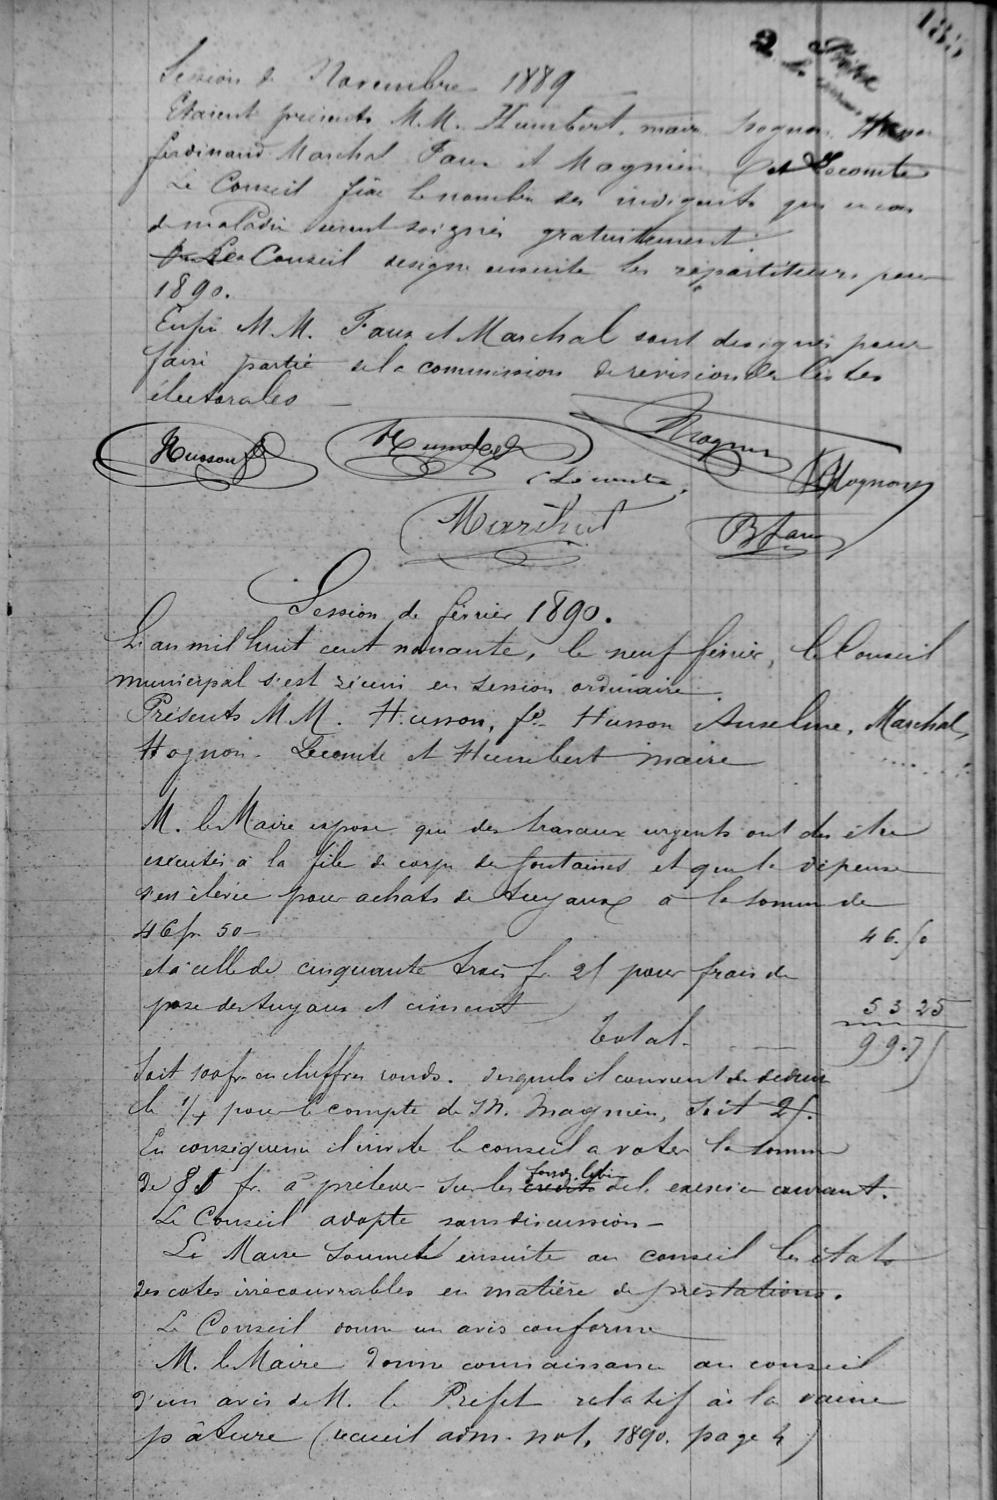 Session de Novembre 1889
Etaient présents M.M. Humbert, maire Hognon, Husson
ferdinand Marchal Faux et Magnien et Lecomte
Le Conseil fixe le nombre des indigents qui en cas
de maladie seront soignés gratuitement
Le Conseil designe ensuite les répartiteurs pour
1890.
Enfin M.M. Faux et Marchal sont designés pour
faire partie de la commission de revision des listes
électorales
Husson f
Humbert
Magnien
Lecomte
Hognon
Maréchal
B faux
Session de février 1890.
L'an mil huit cent nonante, le neuf février, le Conseil
municipal s'est réuni en session ordinaire.
Présents M M. Husson, fd Husson Anselme, Marchal,
Hognon. Lecomte et Humbert maire
M. le Maire expose que des travaux urgents ont du être
executés à la file de corps de fontaines et que la dépense
s'en élevée pour achats de tuyaux à la somme de
46 fr 50 — 46.50
et à celle de cinquante trois fr 25 pour frais de
pose des tuyaux et ciment 53 25
Total. 99.75
Soit 100 fr. en chiffres ronds. desquels il convient de déduire
le 1/4 pour le compte de M. Magnien, soit 25.
En conséquence il invite le conseil a voter la somme
de fr. à prélever sur les crédits fonds libres de l. exercice courant.
Le Conseil adopte sans discussion —
Le Maire soumet ensuite au conseil les états
des cotes irrécouvrables en matière de prestations.
Le Conseil donne un avis conforme
M. le Maire donne connaissance au conseil
d'un avis de M. le Préfet relatif à la vaine
pâture (recueil adm. not, 1890. page 4)